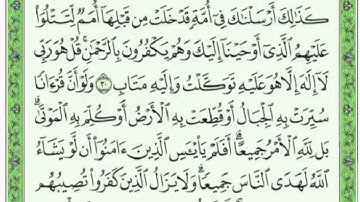 كَذَٰلِكَ أَرْسَلْنَٰكَ فِىٓ أُمَّةٍ قَدْ خَلَتْ مِن قَبْلِهَآ أُمَمٌ لِّتَتْلُوَا۟
عَلَيْهِمُ ٱلَّذِىٓ أَوْحَيْنَآ إِلَيْكَ وَهُمْ يَكْفُرُونَ بِٱلرَّحْمَٰنِ ۚ قُلْ هُوَ رَبِّى
لَآ إِلَٰهَ إِلَّا هُوَ عَلَيْهِ تَوَكَّلْتُ وَإِلَيْهِ مَتَابِ ٣٠ وَلَوْ أَنَّ قُرْءَانًا
سُيِّرَتْ بِهِ ٱلْجِبَالُ أَوْ قُطِّعَتْ بِهِ ٱلْأَرْضُ أَوْ كُلِّمَ بِهِ ٱلْمَوْتَىٰ ۗ
بَل لِّلَّهِ ٱلْأَمْرُ جَمِيعًا ۗ أَفَلَمْ يَا۟يْـَٔسِ ٱلَّذِينَ ءَامَنُوٓا۟ أَن لَّوْ يَشَآءُ
ٱللَّهُ لَهَدَى ٱلنَّاسَ جَمِيعًا ۗ وَلَا يَزَالُ ٱلَّذِينَ كَفَرُوا۟ تُصِيبُهُم